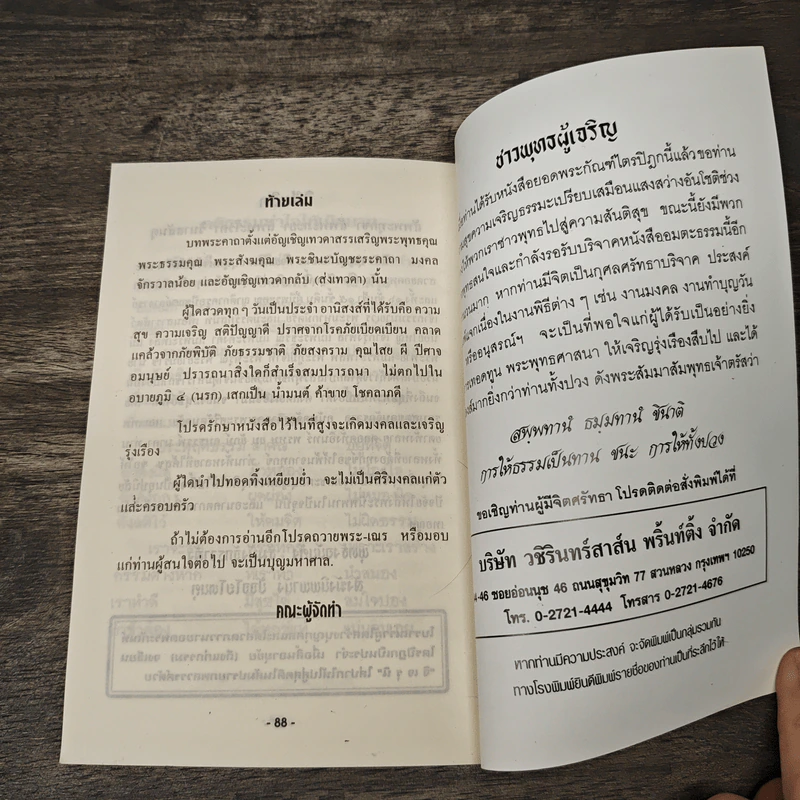 ท้ายเล่ม
บทพระคาถาตั้งแต่อัญเชิญเทวดาสรรเสริญพระพุทธคุณ
พระธรรมคุณ พระสังฆคุณ พระชินะบัญชะระคาถา มงคล
จักรวาลน้อย และอัญเชิญเทวดากลับ (ส่งเทวดา) นั้น
ผู้ใดสวดทุกๆวันเป็นประจำ อานิสงส์ที่ได้รับคือ ความ
สุข ความเจริญ สติปัญญาดี ปราศจากโรคภัยเบียดเบียน คลาด
แคล้วจากภัยพิบัติ ภัยธรรมชาติ ภัยสงคราม คุณไสย ผี ปีศาจ
อมนุษย์ ปรารถนาสิ่งใดก็สำเร็จสมปรารถนา ไม่ตกไปใน
อบายภูมิ ๔ (นรก) เสกเป็น น้ำมนต์ ค้าขาย โชคลาภดี
โปรดรักษาหนังสือไว้ในที่สูงจะเกิดมงคลและเจริญ
รุ่งเรือง
ผู้ใดนำไปทอดทิ้งเหยียบย่ำ จะไม่เป็นศิริมงคลแก่ตัว
และครอบครัว
ถ้าไม่ต้องการอ่านอีกโปรดถวายพระ-เณร หรือมอบ
แก่ท่านผู้สนใจต่อไป จะเป็นบุญมหาศาล.
คณะผู้จัดทำ
- 88 -
ชาวพุทธผู้เจริญ
ท่านได้รับหนังสือยอดพระกัณฑ์ไตรปิฎกนี้แล้วขอท่าน
สุขความเจริญธรรมะเปรียบเสมือนแสงสว่างอันโชติช่วง
ให้พวกเราชาวพุทธไปสู่ความสันติสุข ขณะนี้ยังมีพวก
พุทธสนใจและกำลังรอรับบริจาคหนังสืออมตะธรรมนี้อีก
มาก หากท่านมีจิตเป็นกุศลศรัทธาบริจาค ประสงค์
แจกเนื่องในงานพิธีต่างๆ เช่น งานมงคล งานทำบุญวัน
หรืออนุสรณ์ฯ จะเป็นที่พอใจแก่ผู้ได้รับเป็นอย่างยิ่ง
เทอดทูน พระพุทธศาสนา ให้เจริญรุ่งเรืองสืบไป และได้
มากยิ่งกว่าท่านทั้งปวง ดังพระสัมมาสัมพุทธเจ้าตรัสว่า
สพฺพทานํ ธมฺมทานํ ชินาติ
การให้ธรรมเป็นทาน ชนะ การให้ทั้งปวง
ขอเชิญท่านผู้มีจิตศรัทธา โปรดติดต่อสั่งพิมพ์ได้ที่
บริษัท วชิรินทร์สาส์น พริ้นท์ติ้ง จำกัด
4-46 ซอยอ่อนนุช 46 ถนนสุขุมวิท 77 สวนหลวง กรุงเทพฯ 10250
โทร. 0-2721-4444 โทรสาร 0-2721-4676
หากท่านมีความประสงค์ จะจัดพิมพ์เป็นกลุ่มรวมกัน
ทางโรงพิมพ์ยินดีพิมพ์รายชื่อของท่านเป็นที่ระลึกไว้ได้